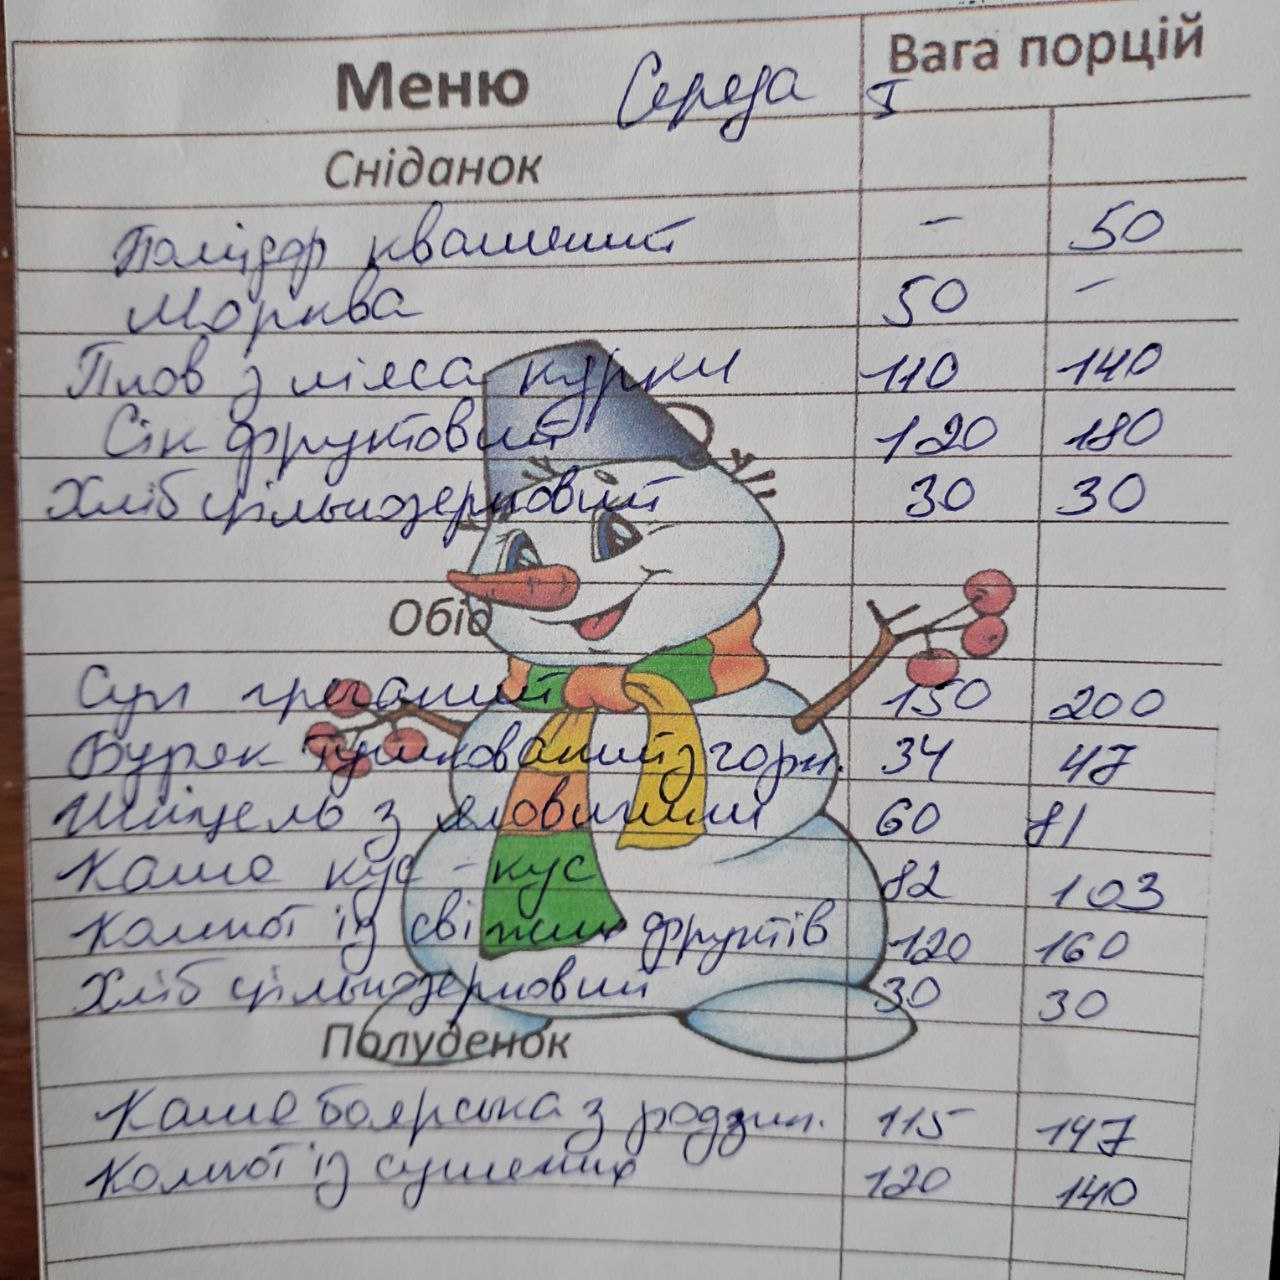 Меню Середа I Вага порцій
Сніданок
Помідор квашений - 50
Морква 50 -
Плов з м'яса курки 110 140
Сік фруктовий 120 180
Хліб цільнозерновий 30 30
Обід
Суп гречаний 150 200
Буряк тушкований з горк. 34 47
Шніцель з яловичини 60 81
Каша кус-кус 82 103
Компот із свіжих фруктів 120 160
Хліб цільнозерновий 30 30
Полуденок
Каша боярська з родзин. 115 147
Компот із сушених 120 140